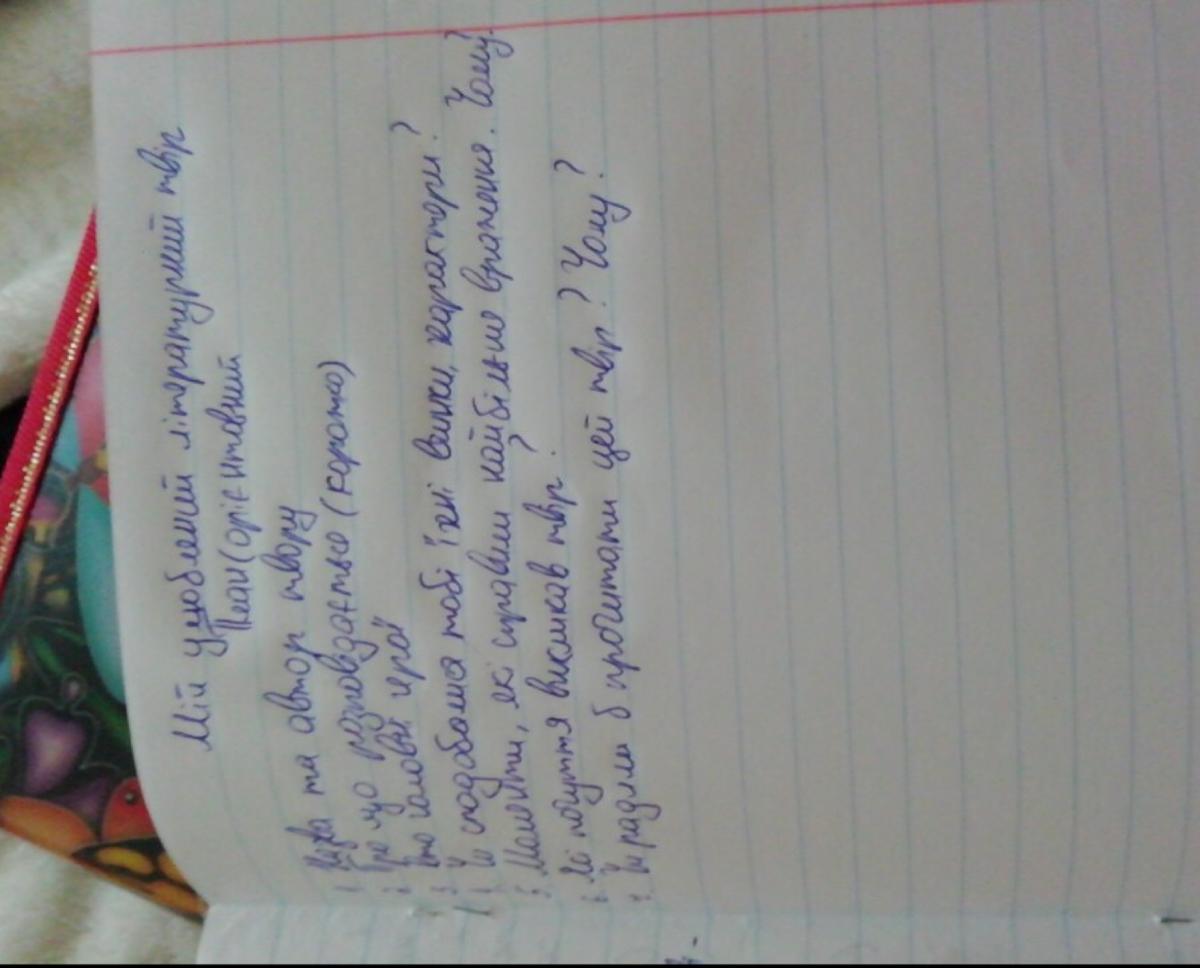 Мій улюблений літературний твір
План (орієнтовний
1. Назва та автор твору
2. Про що розповідається (коротко)
3. Хто головні герої
4. Чи сподобалися тобі їхні вчинки, характери?
5. Моменти, які справили найбільше враження. Чому?
6. Які почуття викликав твір?
7. Чи радили б прочитати цей твір? Чому?